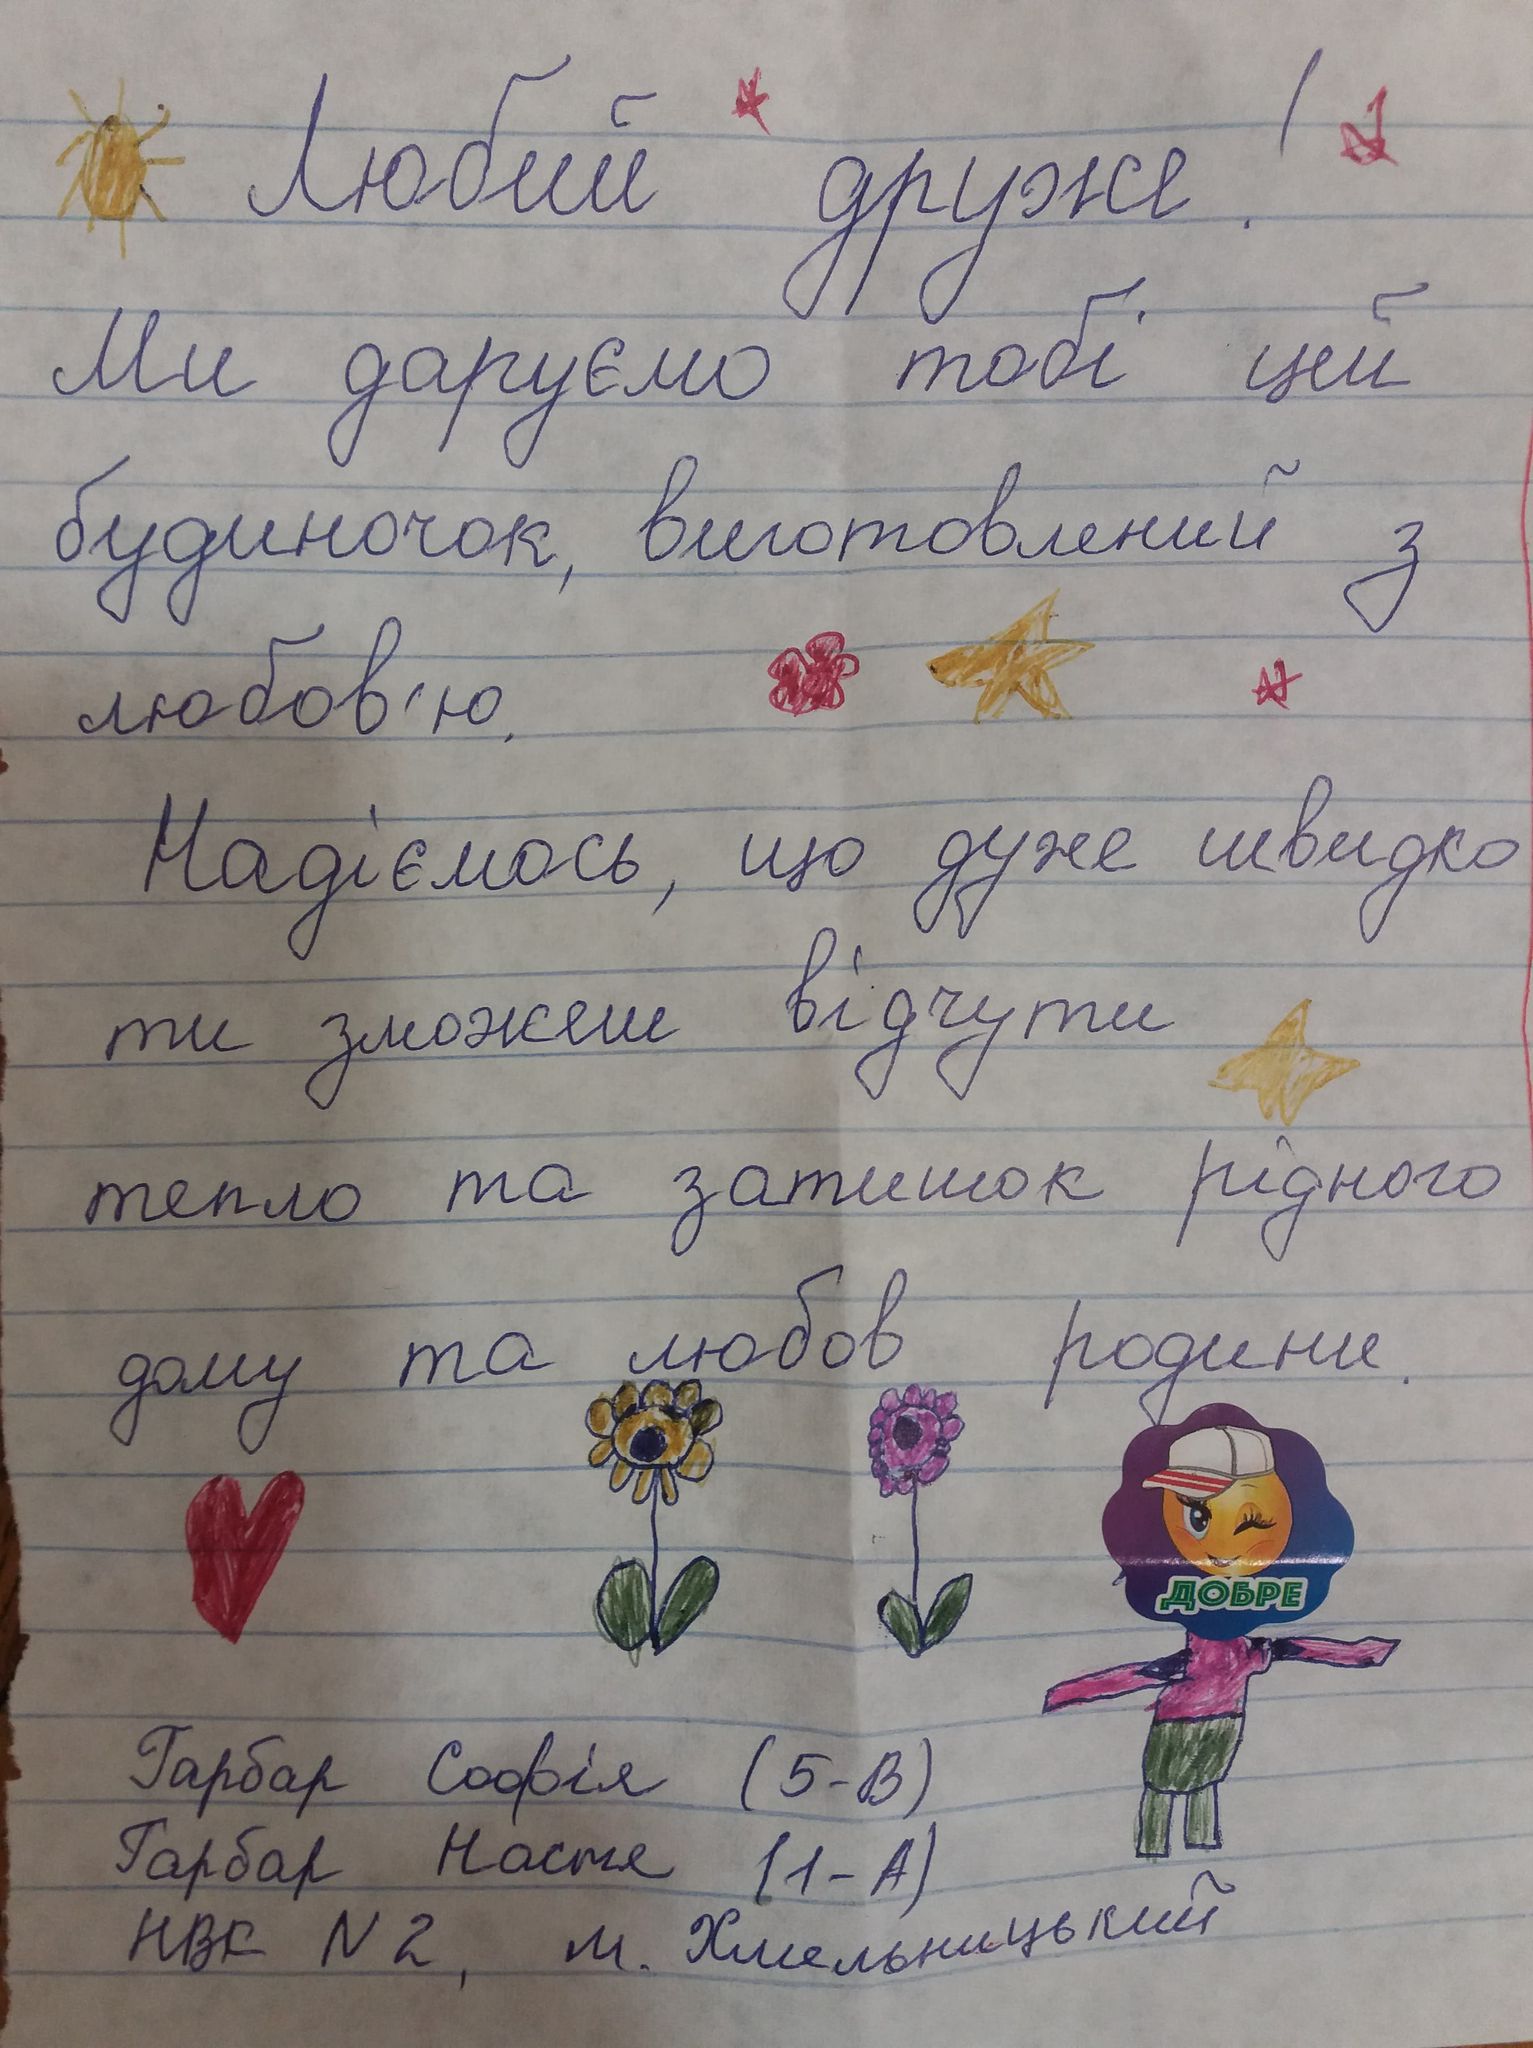 Любий друже!
Ми даруємо тобі цей
будиночок, виготовлений з
любов'ю.
Надіємось, що дуже швидко
ти зможеш відчути
тепло та затишок рідного
дому та любов родини.
ДОБРЕ
Гарбар Софія (5-В)
Гарбар Настя (1-А)
НВК N2, м. Хмельницький